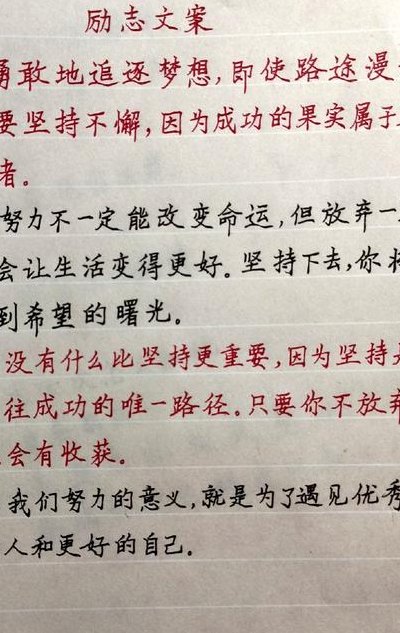 励志文案
勇敢地追逐梦想,即使路途漫
要坚持不懈,因为成功的果实属于
者。
努力不一定能改变命运,但放弃一
会让生活变得更好。坚持下去,你将
到希望的曙光。
没有什么比坚持更重要,因为坚持是
往成功的唯一路径。只要你不放弃
会有收获。
我们努力的意义,就是为了遇见优秀
人和更好的自己。